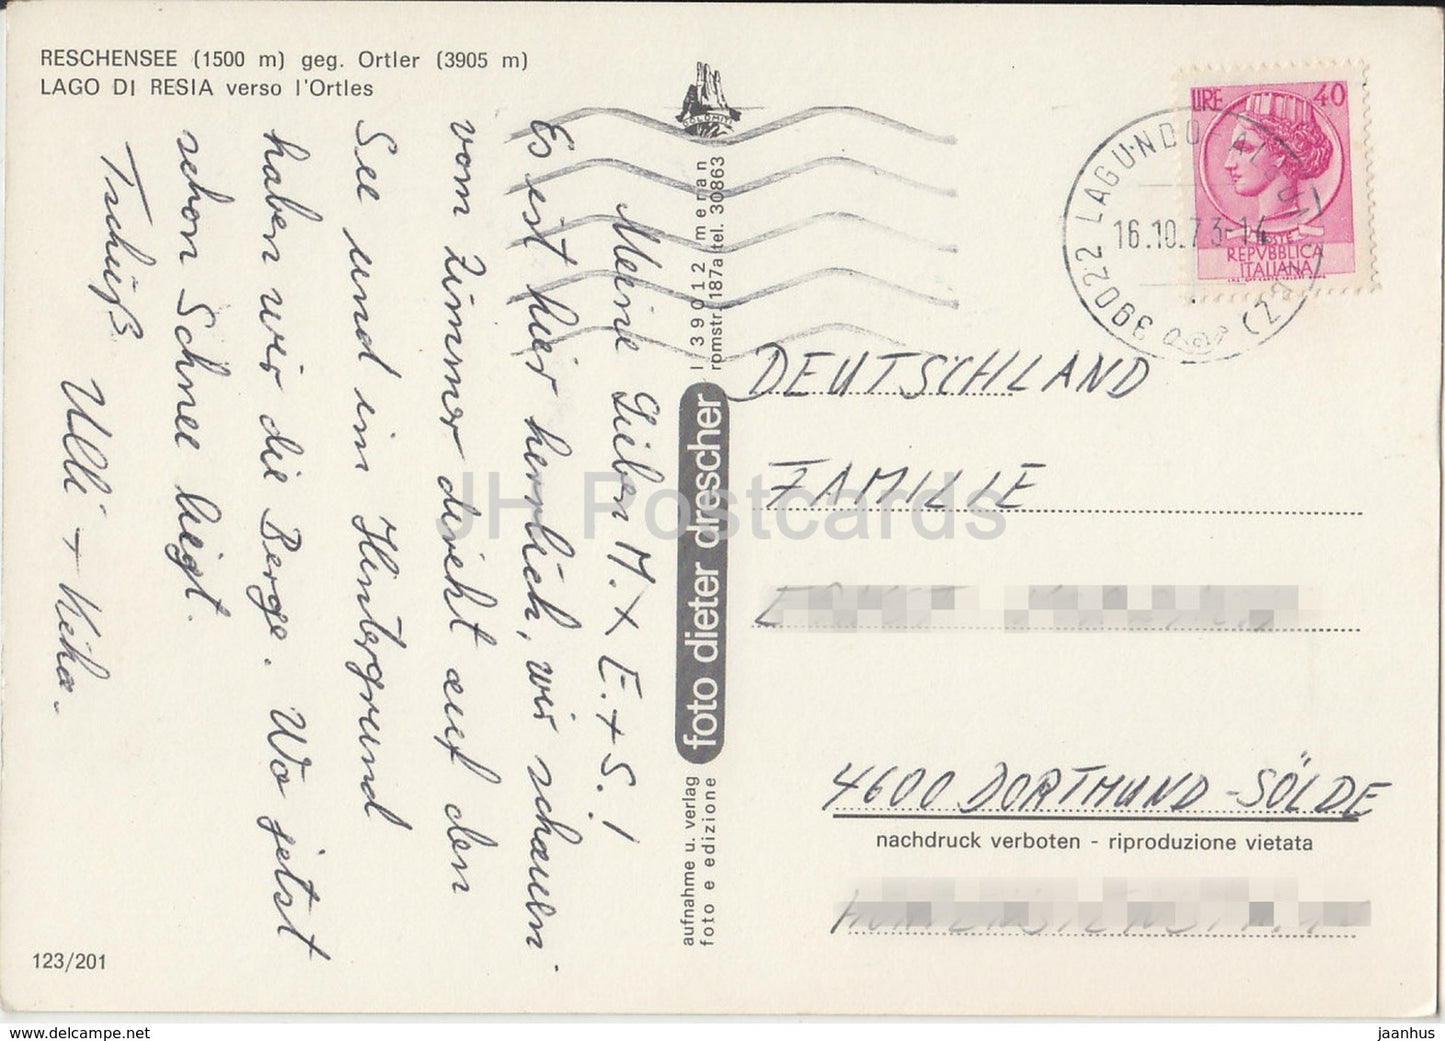 RESCHENSEE (1500 m) geg. Ortler (3905 m)
LAGO DI RESIA verso l'Ortles
Meine Lieben M. + E. + S.!
Es ist hier herrlich, wir schauen
vom Zimmer direkt auf den
See und im Hintergrund
haben wir die Berge. Wo jetzt
schon Schnee liegt.
Tschüß
Ulli + Heike.
123/201
DOLOMITI
I 39012 meran
romstr. 187a tel. 30863
foto dieter drescher
aufnahme u. verlag
foto e edizione
LIRE 40
POSTE
REPVBBLICA
ITALIANA
39022 LAGUNDO ALGUND (BZ)
16.10.73-14
DEUTSCHLAND
FAMILIE
4600 DORTMUND-SÖLDE
nachdruck verboten - riproduzione vietata
JH Postcards
www.delcampe.net
jaanhus